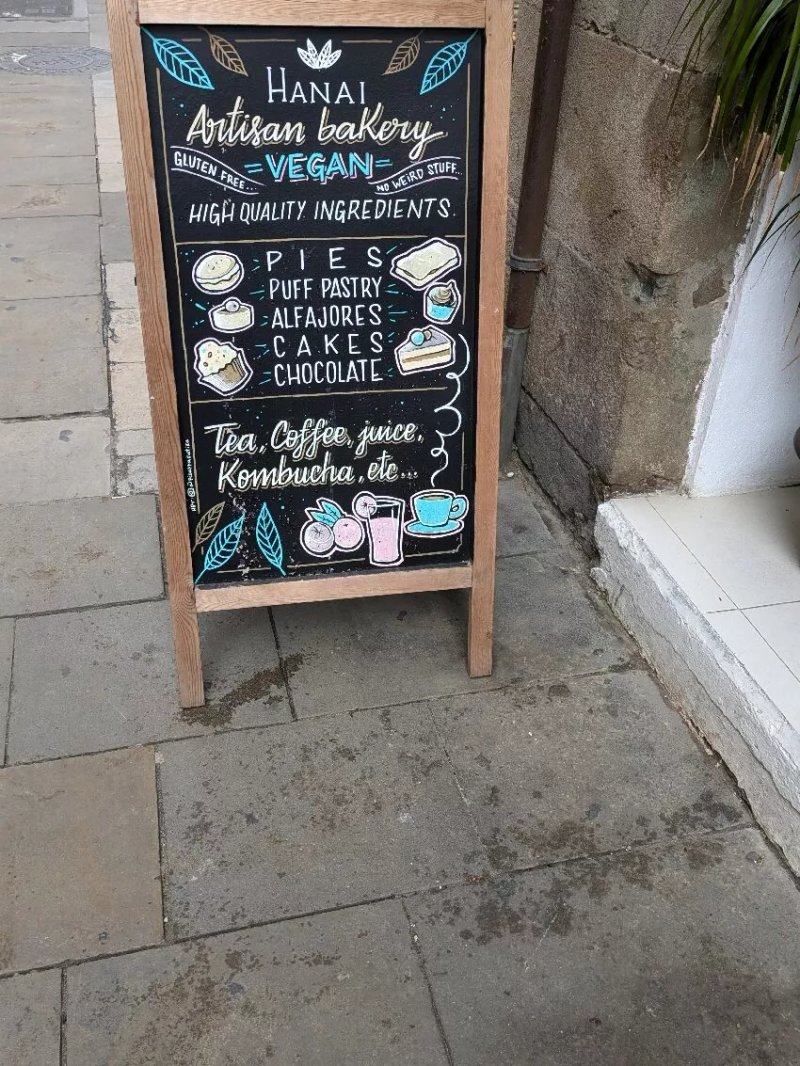 HANAI
Artisan baKery
GLUTEN FREE...
=VEGAN=
NO WEIRD STUFF...
HIGH QUALITY INGREDIENTS.
PIES
PUFF PASTRY
ALFAJORES
CAKES
CHOCOLATE
Tea, Coffee, juice,
Kombucha, etc...